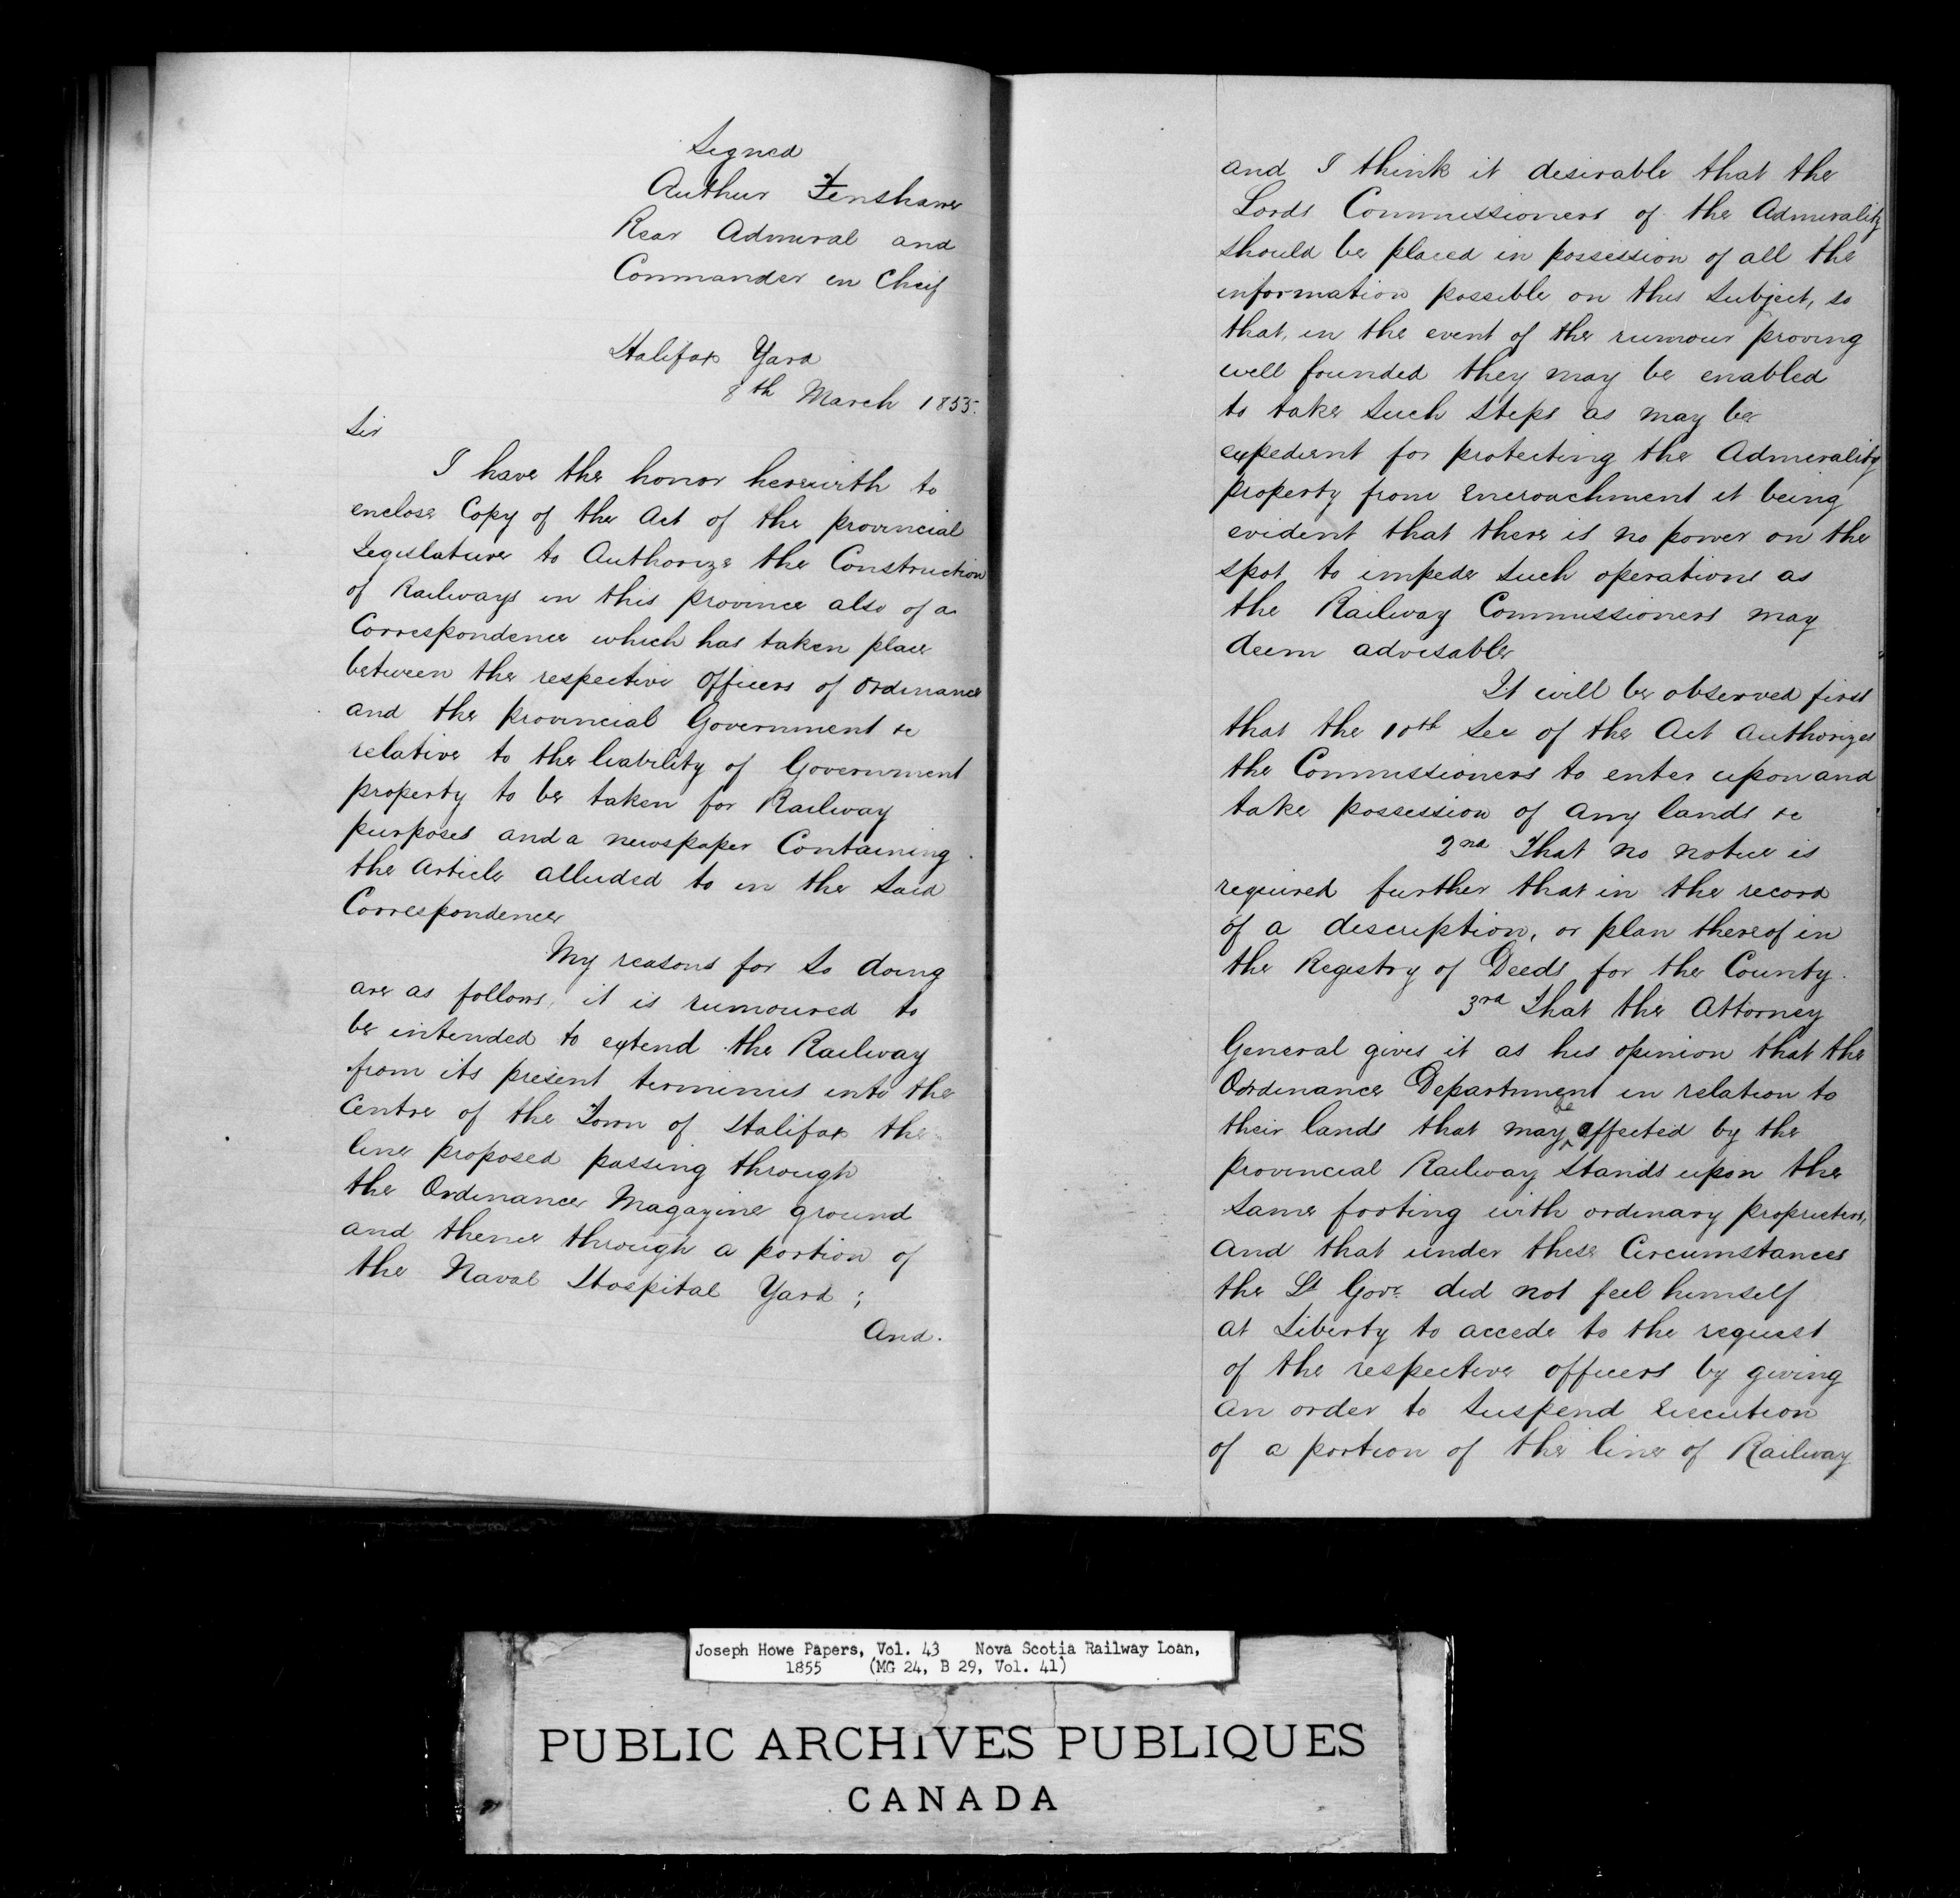 Signed
Authur Fenshawe
Rear Admiral and
Commander in Cheif
Halifax Yard
8th March 1855.
Sir
I have the honor herewith to
enclose Copy of the Act of the provincial
Legislature to Authorize the Construction
of Railways in this province also of a
Correspondence which has taken place
between the respective Officers of Ordinance
and the provincial Government &c
relative to the liability of Government
property to be taken for Railway
purposes and a newspaper Containing
the Article alluded to in the said
Correspondence
My reasons for so doing
are as follows, it is rumoured to
be intended to extend the Railway
from its present terminus into the
Centre of the Town of Halifax the
line proposed passing through
the Ordinance Magazine ground
and thence through a portion of
the Naval Hospital Yard ;
And.
and I think it desirable that the
Lords Commissioners of the Admirality
should be placed in possession of all the
information possible on this subject, so
that, in the event of the rumour proving
well founded they may be enabled
to take such steps as may be
expedient for protecting the Admirality
property from Encroachment it being
evident that there is no power on the
spot to impede such operations as
the Railway Commissioners may
deem advisable
It will be observed first
that the 10th Sec of the Act Authorizes
the Commissioners to enter upon and
take possession of any lands &c
2nd That no notice is
required further that in the record
of a description, or plan thereof in
the Registry of Deeds for the County.
3rd That the Attorney
General gives it as his opinion that the
Ordinance Department in relation to
their lands that may be affected by the
provincial Railway stands upon the
same footing with ordinary proprietors,
and that under these Circumstances
the Lt Govr. did not feel himself
at Liberty to accede to the request
of the respective officers by giving
an order to suspend Execution
of a portion of the line of Railway
Joseph Howe Papers, Vol. 43 Nova Scotia Railway Loan,
1855 (MG 24, B 29, Vol. 41)
PUBLIC ARCHIVES PUBLIQUES
CANADA